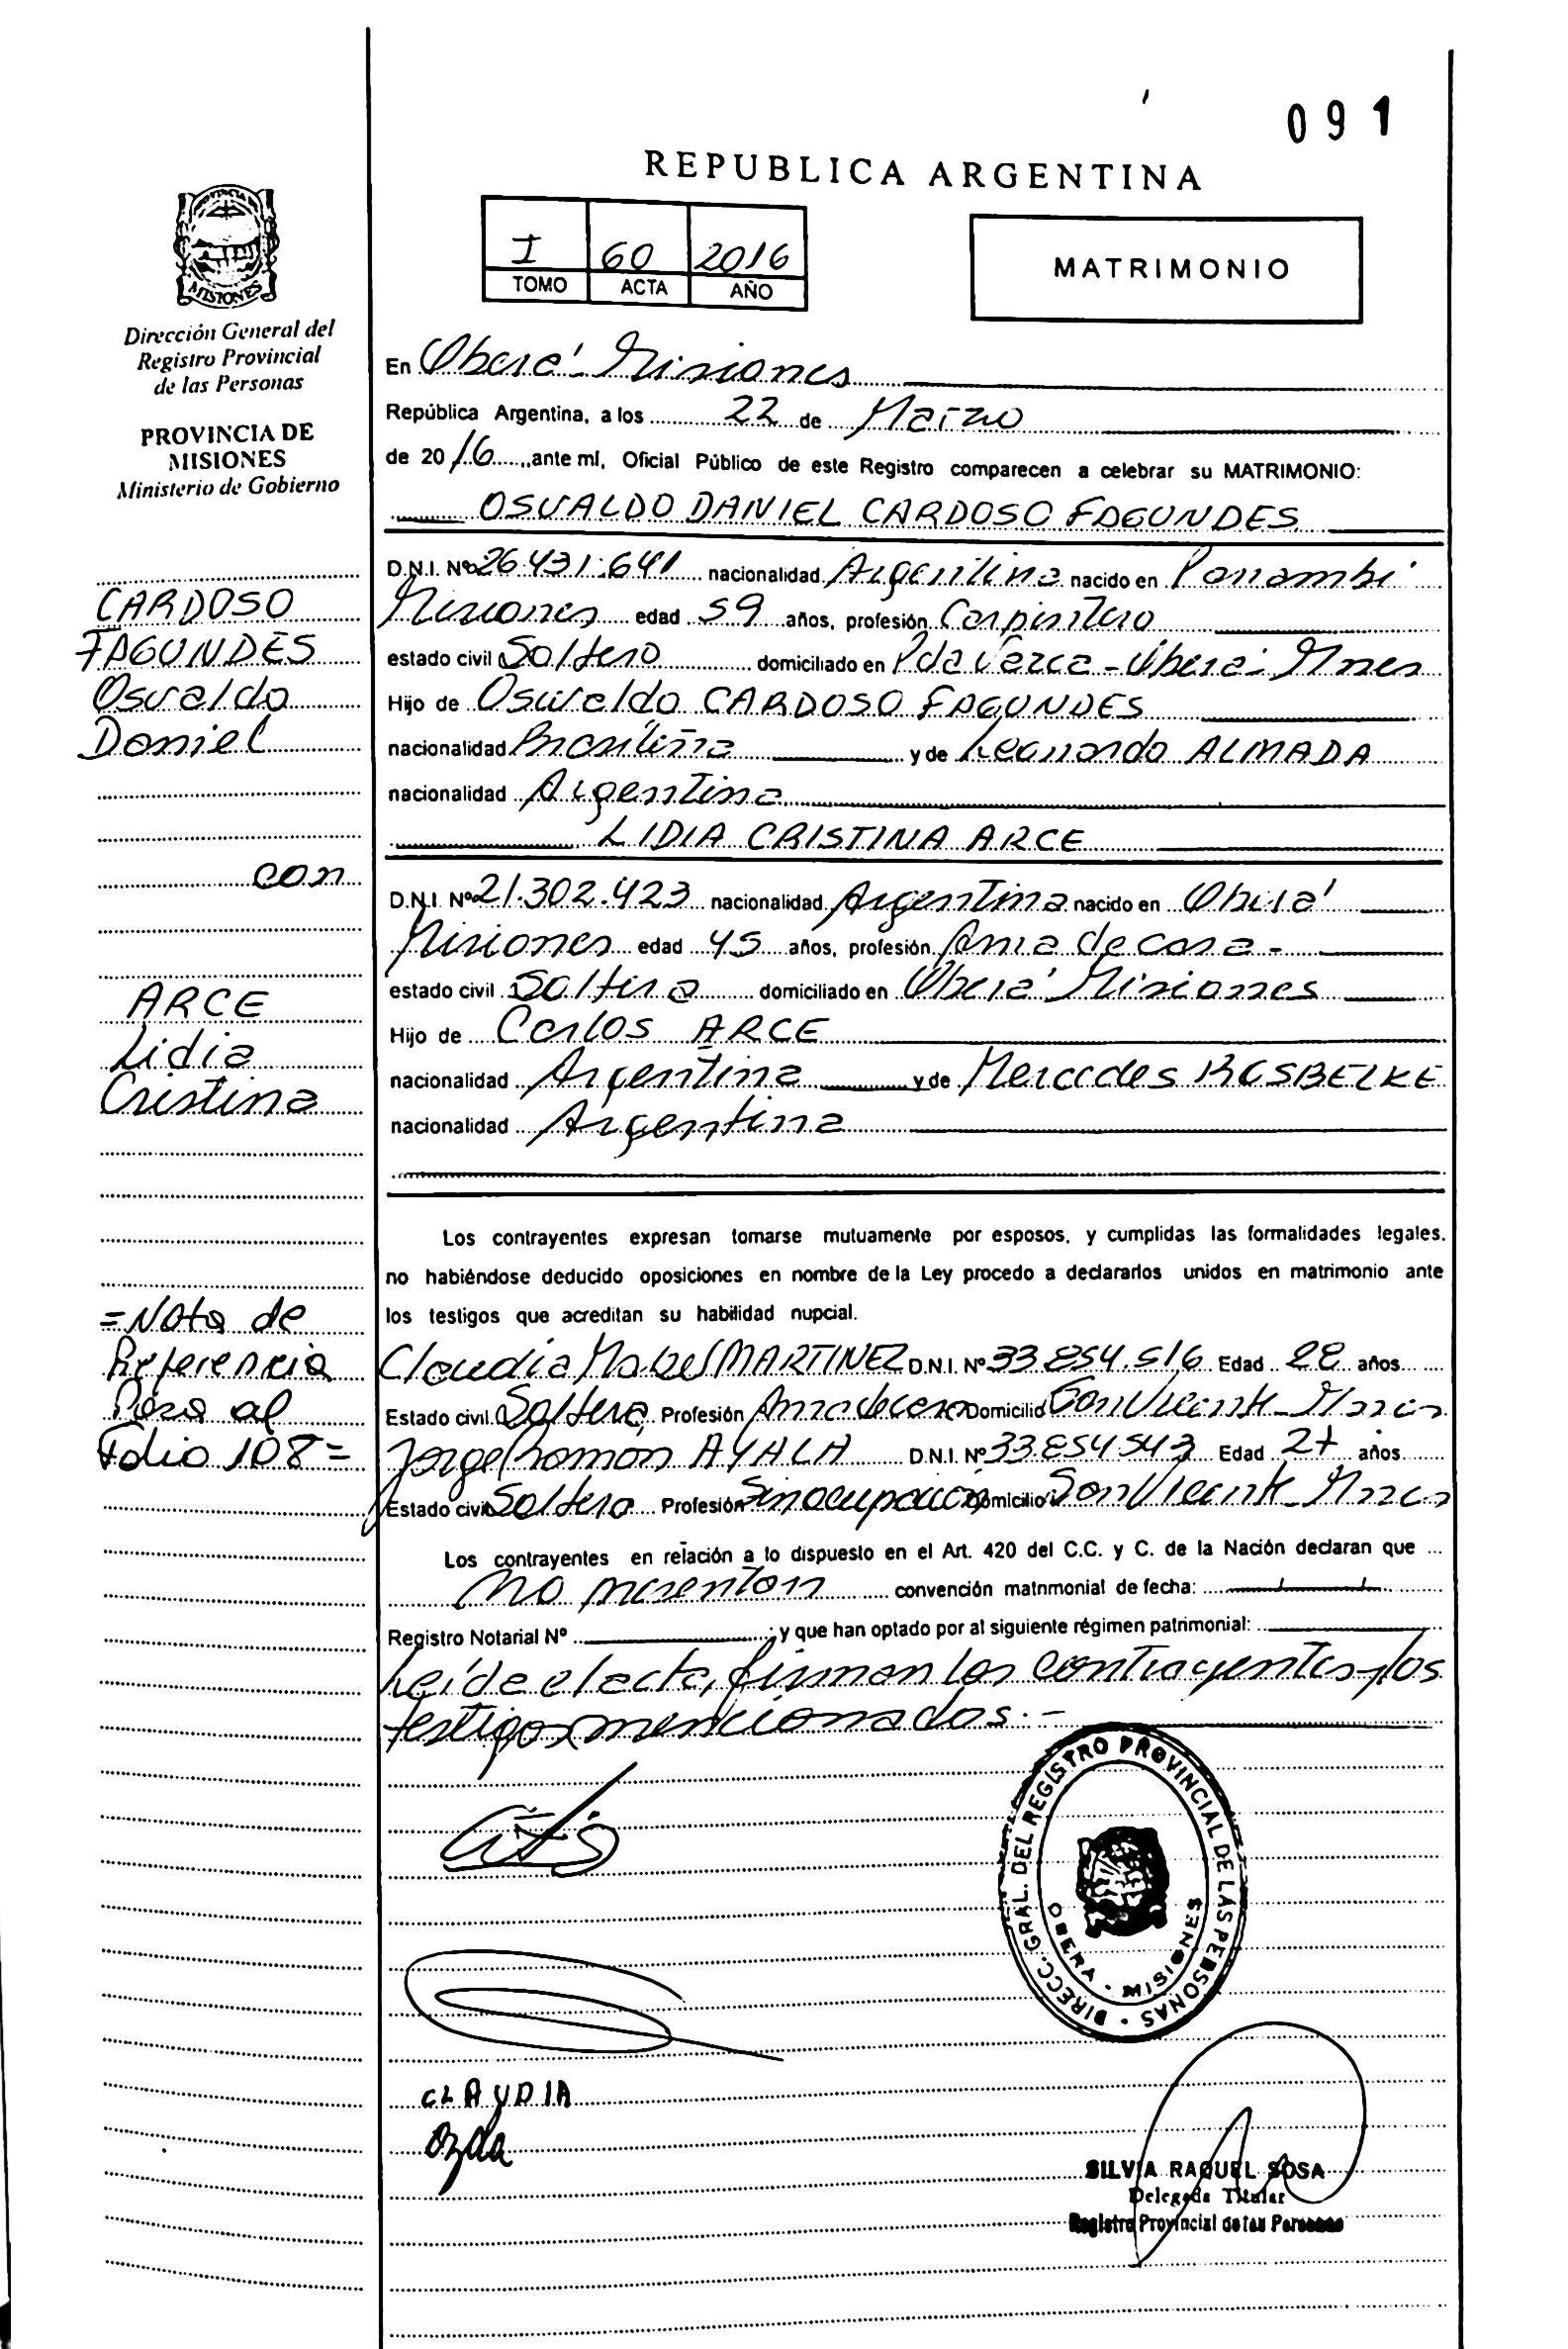 091
REPUBLICA ARGENTINA
I 60 2016
TOMO ACTA AÑO
MATRIMONIO
PROVINCIA DE MISIONES
Dirección General del
Registro Provincial
de las Personas
PROVINCIA DE
MISIONES
Ministerio de Gobierno
CARDOSO
FAGUNDES
Osvaldo
Daniel
con
ARCE
Lidia
Cristina
=Nota de
Referencia
Pasa al
Folio 108=
En Oberá - Misiones
República Argentina, a los 22 de Marzo
de 2016, ante mí, Oficial Público de este Registro comparecen a celebrar su MATRIMONIO:
OSVALDO DANIEL CARDOSO FAGUNDES
D.N.I. Nº 26.431.641 nacionalidad Argentina nacido en Panambí
Misiones edad 59 años, profesión Carpintero
estado civil Soltero domiciliado en Pda Varca - Oberá - Mnes
Hijo de Osvaldo CARDOSO FAGUNDES
nacionalidad Brasileña y de Leonarda ALMADA
nacionalidad Argentina
LIDIA CRISTINA ARCE
D.N.I. Nº 21.302.423 nacionalidad Argentina nacido en Oberá
Misiones edad 45 años, profesión Ama de casa -
estado civil Soltera domiciliado en Oberá Misiones
Hijo de Carlos ARCE
nacionalidad Argentina y de Mercedes
nacionalidad Argentina
Los contrayentes expresan tomarse mutuamente por esposos, y cumplidas las formalidades legales.
no habiéndose deducido oposiciones en nombre de la Ley procedo a declararlos unidos en matrimonio ante
los testigos que acreditan su habilidad nupcial.
Claudia Mabel MARTINEZ D.N.I. Nº 33.854.516 Edad 28 años
Estado civil Soltera Profesión Ama de casa Domicilio San Vicente - Mnes
Jorge Ramon AYALA D.N.I. Nº 33.854.543 Edad 27 años
Estado civil Soltero Profesión Sin ocupación Domicilio San Vicente - Mnes
Los contrayentes en relación a lo dispuesto en el Art. 420 del C.C. y C. de la Nación declaran que ...
no presentan convención matrimonial de fecha:
Registro Notarial Nº ; y que han optado por al siguiente régimen patrimonial:
Leída el acta, firman los contrayentes, los
testigos mencionados. -
DIRECC. GRAL. DEL REGISTRO PROVINCIAL DE LAS PERSONAS
OBERA - MISIONES
CLAUDIA
SILVIA RAQUEL SOSA
Delegada Titular
Registro Provincial de las Personas